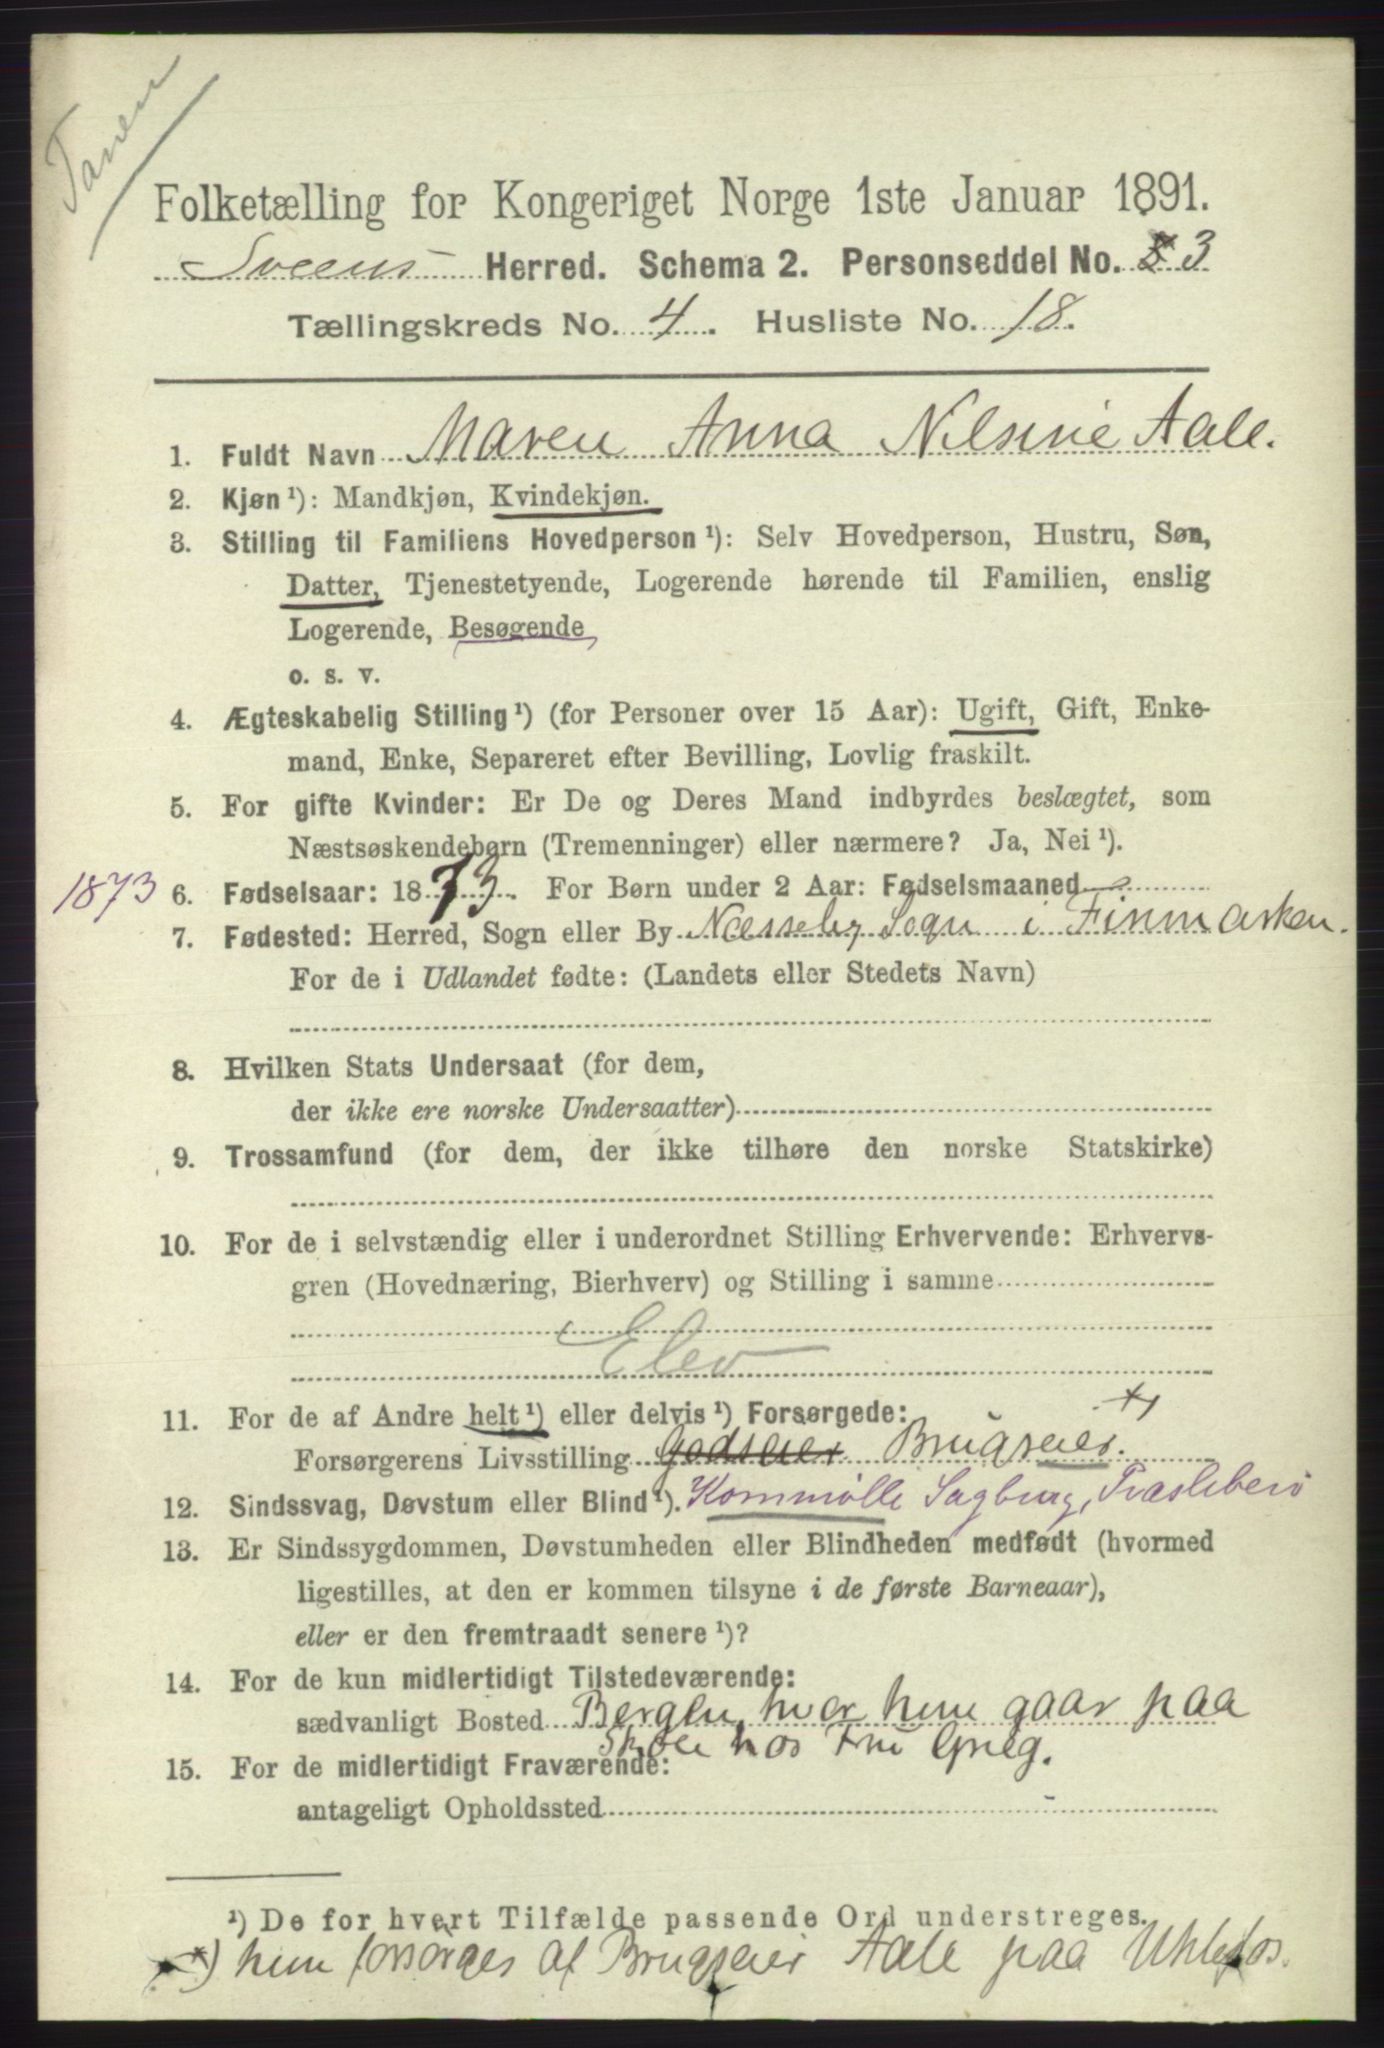 Tanen
Folketælling for Kongeriget Norge 1ste Januar 1891.
Sveens Herred. Schema 2. Personseddel No. 3
Tællingskreds No. 4. Husliste No. 18.
1. Fuldt Navn Maren Anna Nilsine Aale.
2. Kjøn ¹): Mandkjøn, Kvindekjøn.
3. Stilling til Familiens Hovedperson ¹): Selv Hovedperson, Hustru, Søn,
Datter, Tjenestetyende, Logerende hørende til Familien, enslig
Logerende, Besøgende
o. s. v.
4. Ægteskabelig Stilling ¹) (for Personer over 15 Aar): Ugift, Gift, Enke-
mand, Enke, Separeret efter Bevilling, Lovlig fraskilt.
5. For gifte Kvinder: Er De og Deres Mand indbyrdes beslægtet, som
Næstsøskendebørn (Tremenninger) eller nærmere? Ja, Nei ¹).
1873 6. Fødselsaar: 1873. For Børn under 2 Aar: Fødselsmaaned
7. Fødested: Herred, Sogn eller By Næsseby Sogn i Finmarken.
For de i Udlandet fødte: (Landets eller Stedets Navn)
8. Hvilken Stats Undersaat (for dem,
der ikke ere norske Undersaatter)
9. Trossamfund (for dem, der ikke tilhøre den norske Statskirke)
10. For de i selvstændig eller i underordnet Stilling Erhvervende: Erhvervs-
gren (Hovednæring, Bierhverv) og Stilling i samme
Elev
11. For de af Andre helt ¹) eller delvis ¹) Forsørgede: *)
Forsørgerens Livsstilling Godseier Brugseier.
12. Sindssvag, Døvstum eller Blind ¹). Kornmølle Sagbrug, Træsliberi
13. Er Sindssygdommen, Døvstumheden eller Blindheden medfødt (hvormed
ligestilles, at den er kommen tilsyne i de første Barneaar),
eller er den fremtraadt senere ¹)?
14. For de kun midlertidigt Tilstedeværende:
sædvanligt Bosted Bergen, hvor hun gaar paa
Skole hos Fru Grieg.
15. For de midlertidigt Fraværende:
antageligt Opholdssted
¹) De for hvert Tilfælde passende Ord understreges.
*) hun forsørges af Brugseier Aale paa Uhlefos.